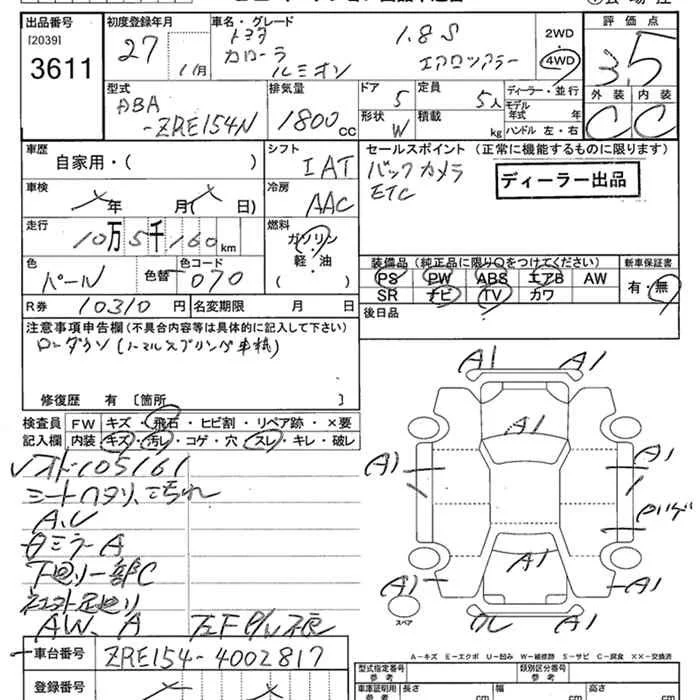 出品番号
[2039]
3611
初度登録年月
27 1/月
車名・グレード
トヨタ
カローラ
ルミオン
1.8S
エアロツアラー
2WD
4WD
評価点
3.5
外装 内装
C C
型式
ABA
-ZRE154N
排気量
1800cc
ドア
5
定員
5人
形状
W
積載
kg
ディーラー・並行
モデル年式 年式
ハンドル 左・右
車歴
自家用・( )
シフト
IAT
セールスポイント (正常に機能するものに限ります)
バックカメラ
ETC
ディーラー出品
車検
年 月( 日)
冷房
AAC
走行
10万5千160km
燃料
ガソリン
軽・油
( )
色
パール
色替
色コード
070
装備品 (純正品に限り〇をつけてください)
PS PW ABS エアB AW
SR ナビ TV カワ
新車保証書
有・無
R券 10310円
名変期限 月 日
後日品
注意事項申告欄(不具合内容等は具体的に記入して下さい)
ローダウン(ノーマルスプリング車載)
修復歴 有 〔箇所 〕
検査員
記入欄
FW キズ・飛石・ヒビ割・リペア跡・×要
内装 キズ・汚レ・コゲ・穴・スレ・キレ・破レ
105161
シートヘタリ、こ汚れ
A、U
ミラーA
下廻り一部C
AW、A
A1 A1
A1
A1 A1
A1
A1 A1
A1
スペア
A-キズ E-エクボ U-凹み W-補修跡 S-サビ C-腐食 XX-交換済
車台番号 ZRE154-4002817
登録番号
型式指定番号
参考
類別区分番号
参考
車庫証明用
参考
長さ cm
幅 cm
高さ cm